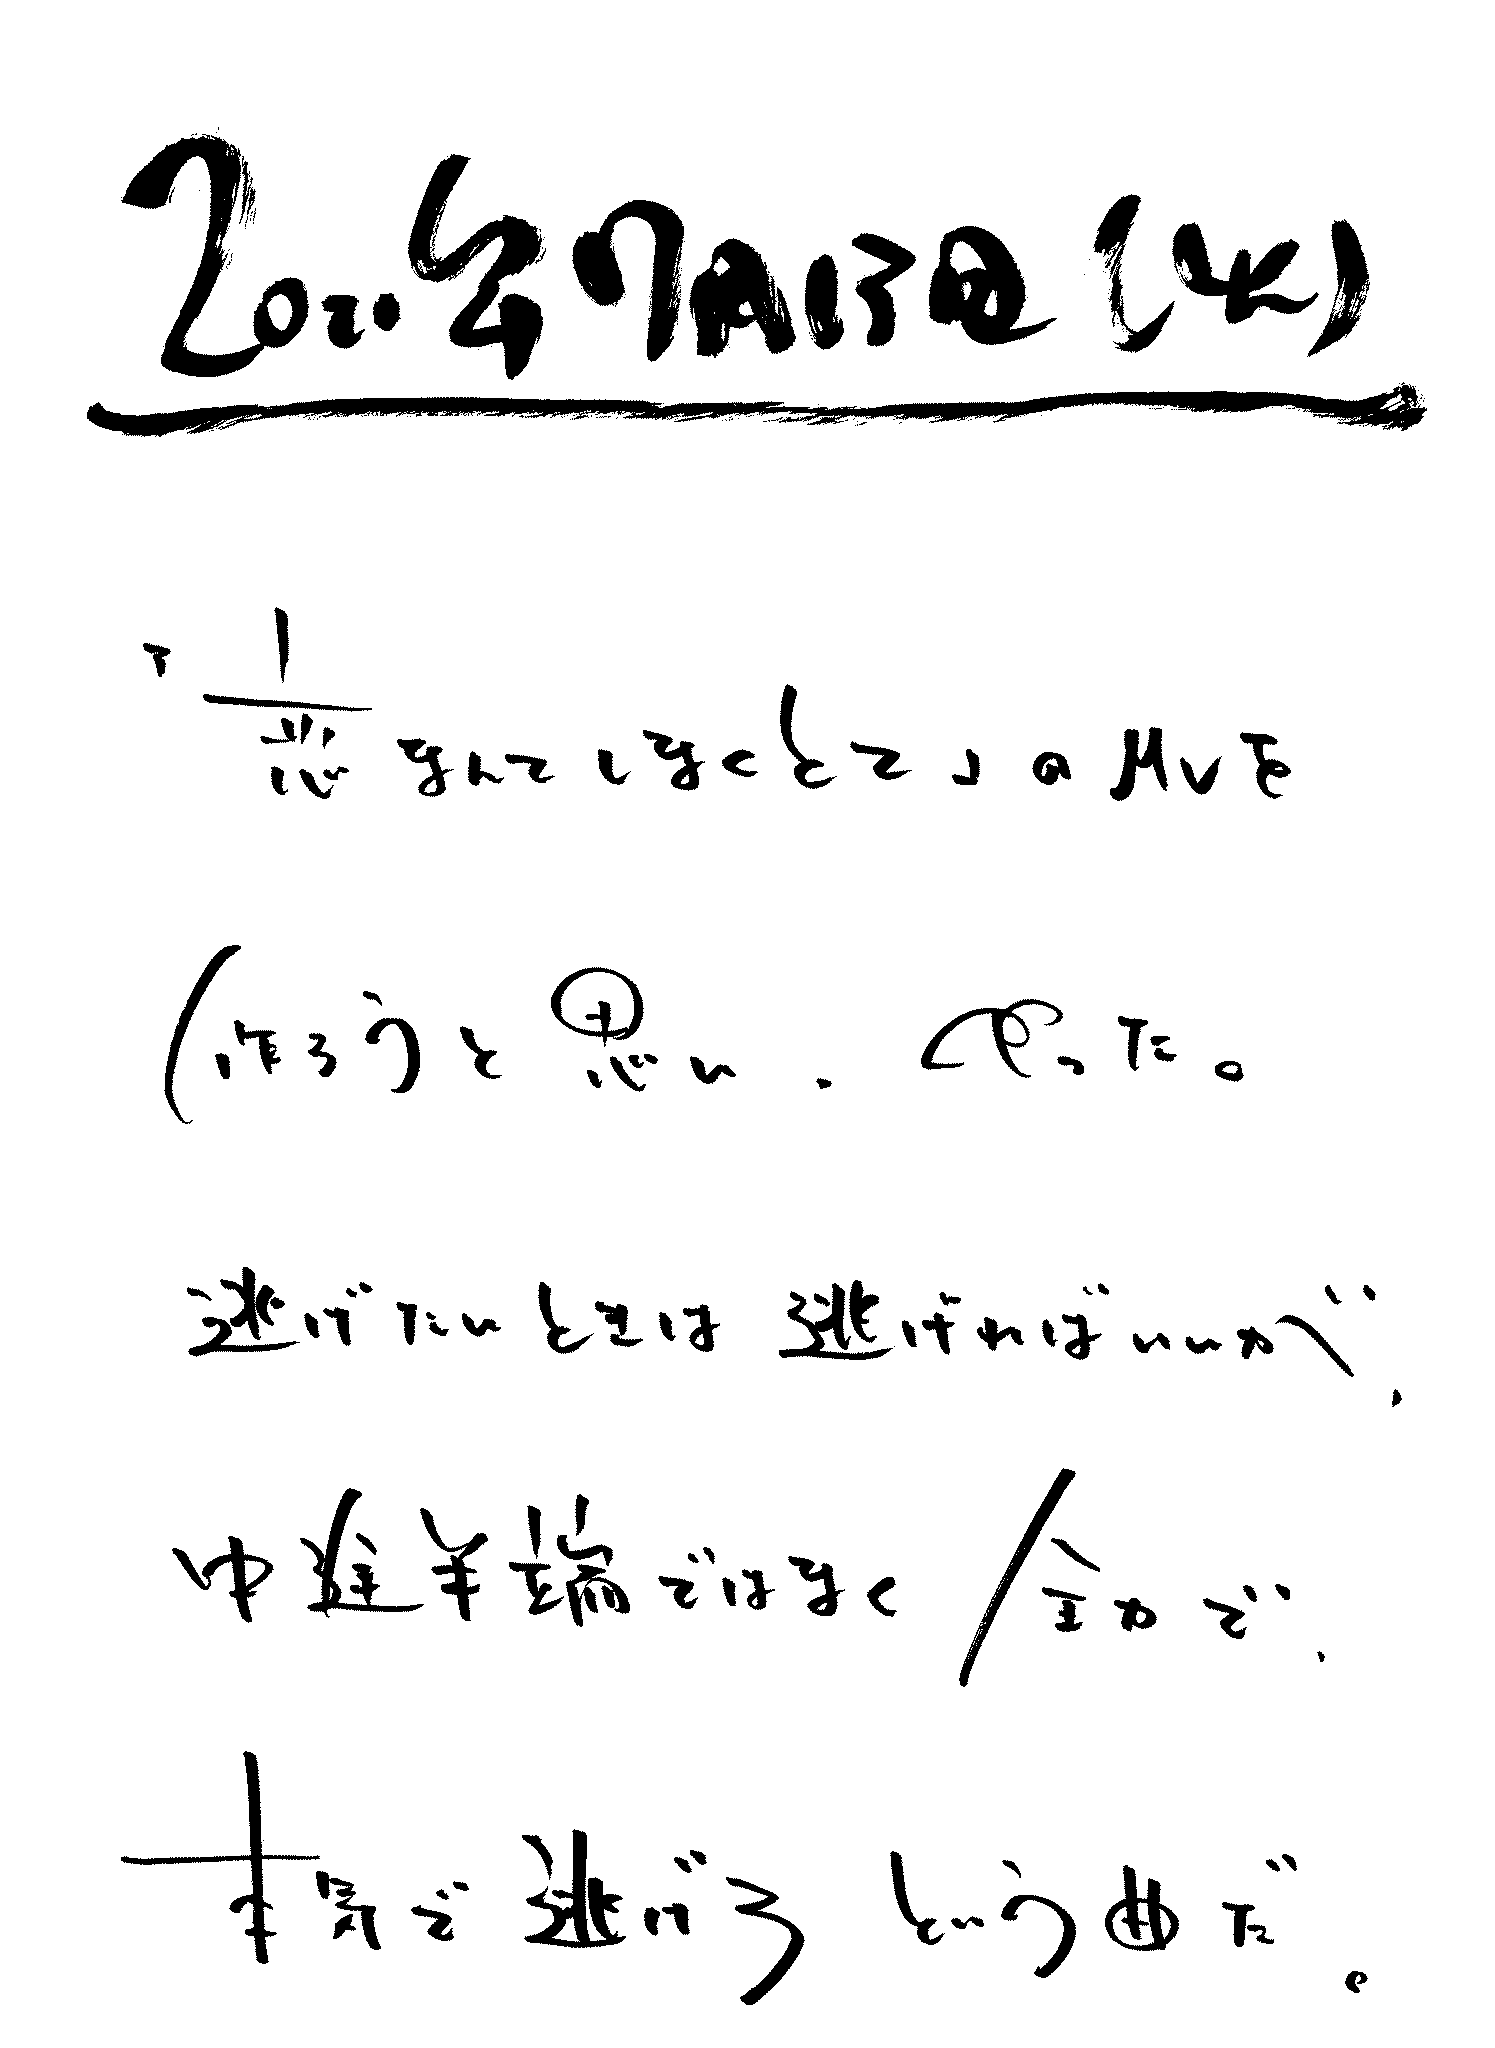 2020年7月15日(水)
「恋なんてしなくとて」のMVを
作ろうと思い、やった。
逃げたいときは逃げればいいが、
中途半端ではなく全力で、
本気で逃げろという曲だ。